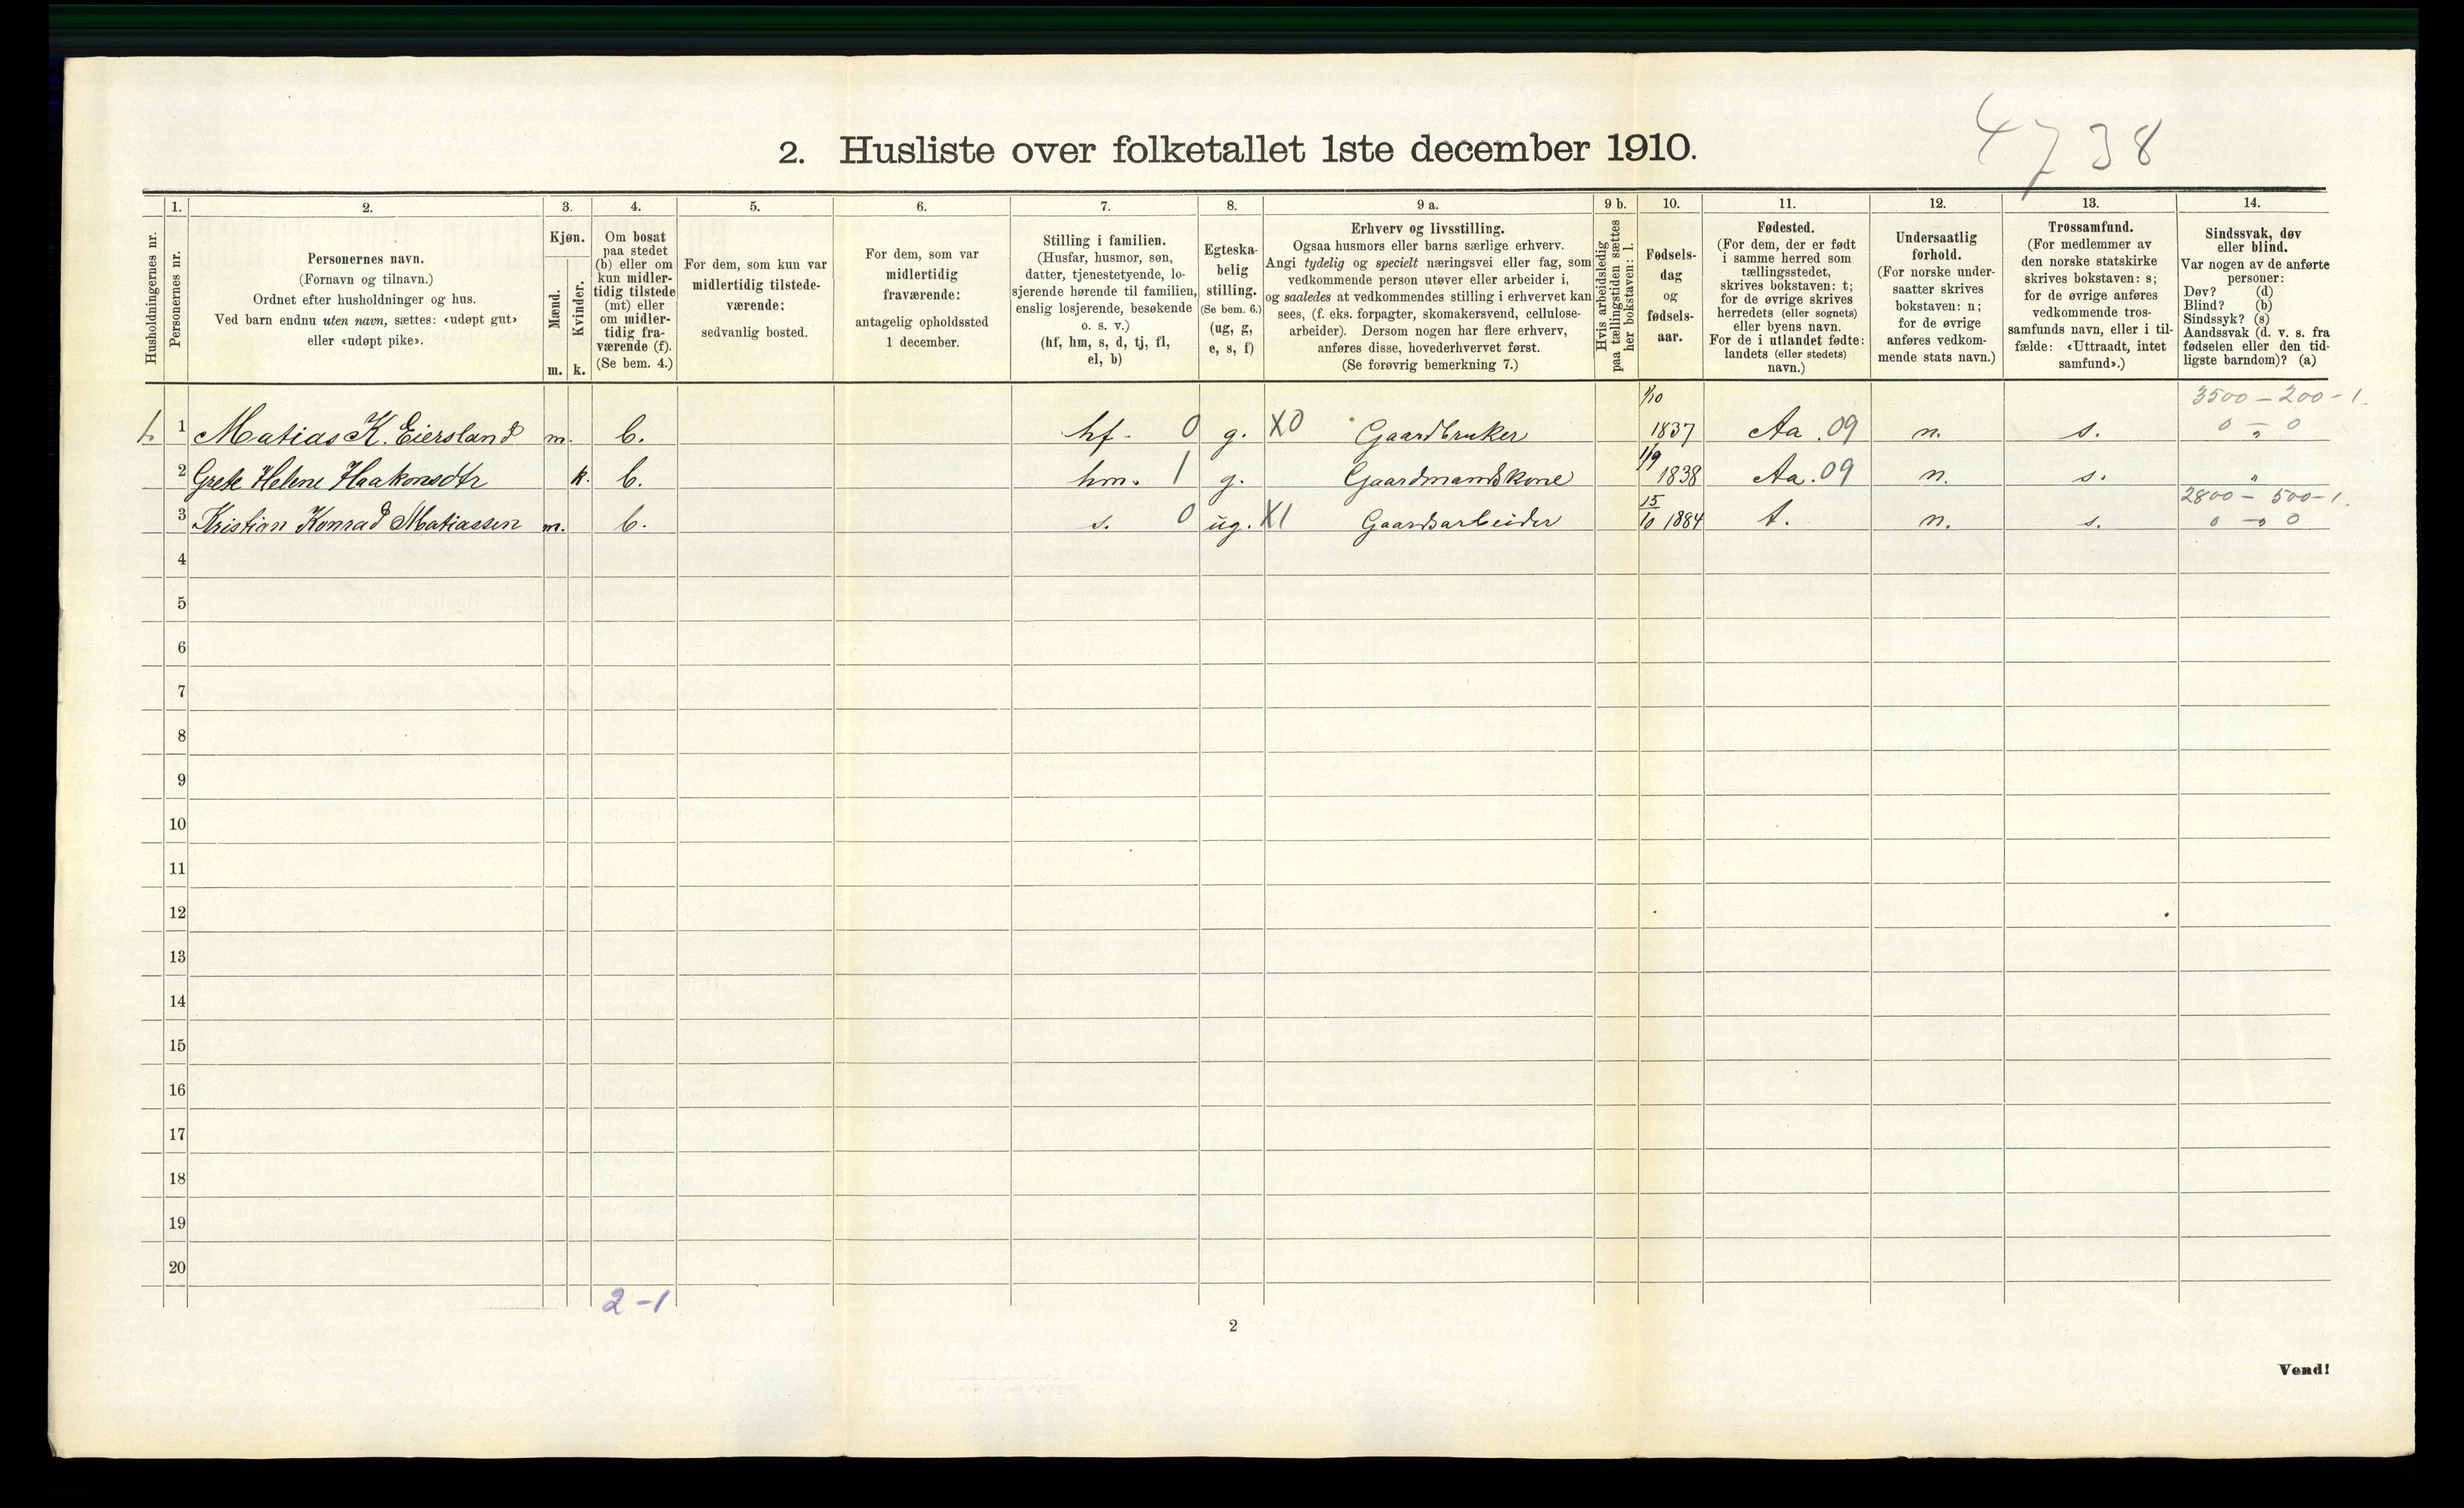 4738
2. Husliste over folketallet 1ste december 1910.
Husholdningernes nr.
1. Personernes nr.
2.
Personernes navn.
(Fornavn og tilnavn.)
Ordnet efter husholdninger og hus.
Ved barn endnu uten navn, sættes: «udøpt gut»
eller «udøpt pike».
3.
Kjøn.
Mænd. m.
Kvinder. k.
4.
Om bosat
paa stedet
(b) eller om
kun midler-
tidig tilstede
(mt) eller
om midler-
tidig fra-
værende (f).
(Se bem. 4.)
5.
For dem, som kun var
midlertidig tilstede-
værende:
sedvanlig bosted.
6.
For dem, som var
midlertidig
fraværende:
antagelig opholdssted
1 december.
7.
Stilling i familien.
(Husfar, husmor, søn,
datter, tjenestetyende, lo-
sjerende hørende til familien,
enslig losjerende, besøkende
o. s. v.)
(hf, hm, s, d, tj, fl,
el, b)
8.
Egteska-
belig
stilling.
(Se bem. 6.)
(ug, g,
e, s, f)
9 a.
Erhverv og livsstilling.
Ogsaa husmors eller barns særlige erhverv.
Angi tydelig og specielt næringsvei eller fag, som
vedkommende person utøver eller arbeider i,
og saaledes at vedkommendes stilling i erhvervet kan
sees, (f. eks. forpagter, skomakersvend, cellulose-
arbeider). Dersom nogen har flere erhverv,
anføres disse, hovederhvervet først.
(Se forøvrig bemerkning 7.)
9 b.
Hvis arbeidsledig
paa tællingstiden sættes
her bokstaven: l.
10.
Fødsels-
dag
og
fødsels-
aar.
11.
Fødested.
(For dem, der er født
i samme herred som
tællingsstedet,
skrives bokstaven: t;
for de øvrige skrives
herredets (eller sognets)
eller byens navn.
For de i utlandet fødte:
landets (eller stedets)
navn.)
12.
Undersaatlig
forhold.
(For norske under-
saatter skrives
bokstaven: n;
for de øvrige
anføres vedkom-
mende stats navn.)
13.
Trossamfund.
(For medlemmer av
den norske statskirke
skrives bokstaven: s;
for de øvrige anføres
vedkommende tros-
samfunds navn, eller i til-
fælde: «Uttraadt, intet
samfund».)
14.
Sindssvak, døv
eller blind.
Var nogen av de anførte
personer:
Døv? (d)
Blind? (b)
Sindssyk? (s)
Aandssvak (d. v. s. fra
fødselen eller den tid-
ligste barndom)? (a)
1/10 3500 - 200 - 1.
1. 1 Matias K. Eiersland m. b. hf. 0 g. X0 Gaardbruker 1837 Aa. 09 n. s. 0 - 0
2 Grete Helene Haakonsdtr k. b. hm. 1 g. Gaardmandskone 1/9 1838 Aa. 09 n. s. "
2800 - 500 - 1.
3 Kristian Konrad Matiassen m. b. s. 0 ug. X1 Gaardsarbeider 15/10 1884 t. n. s. 0 - 0
4
5
6
7
8
9
10
11
12
13
14
15
16
17
18
19
20
2-1
2
Vend!